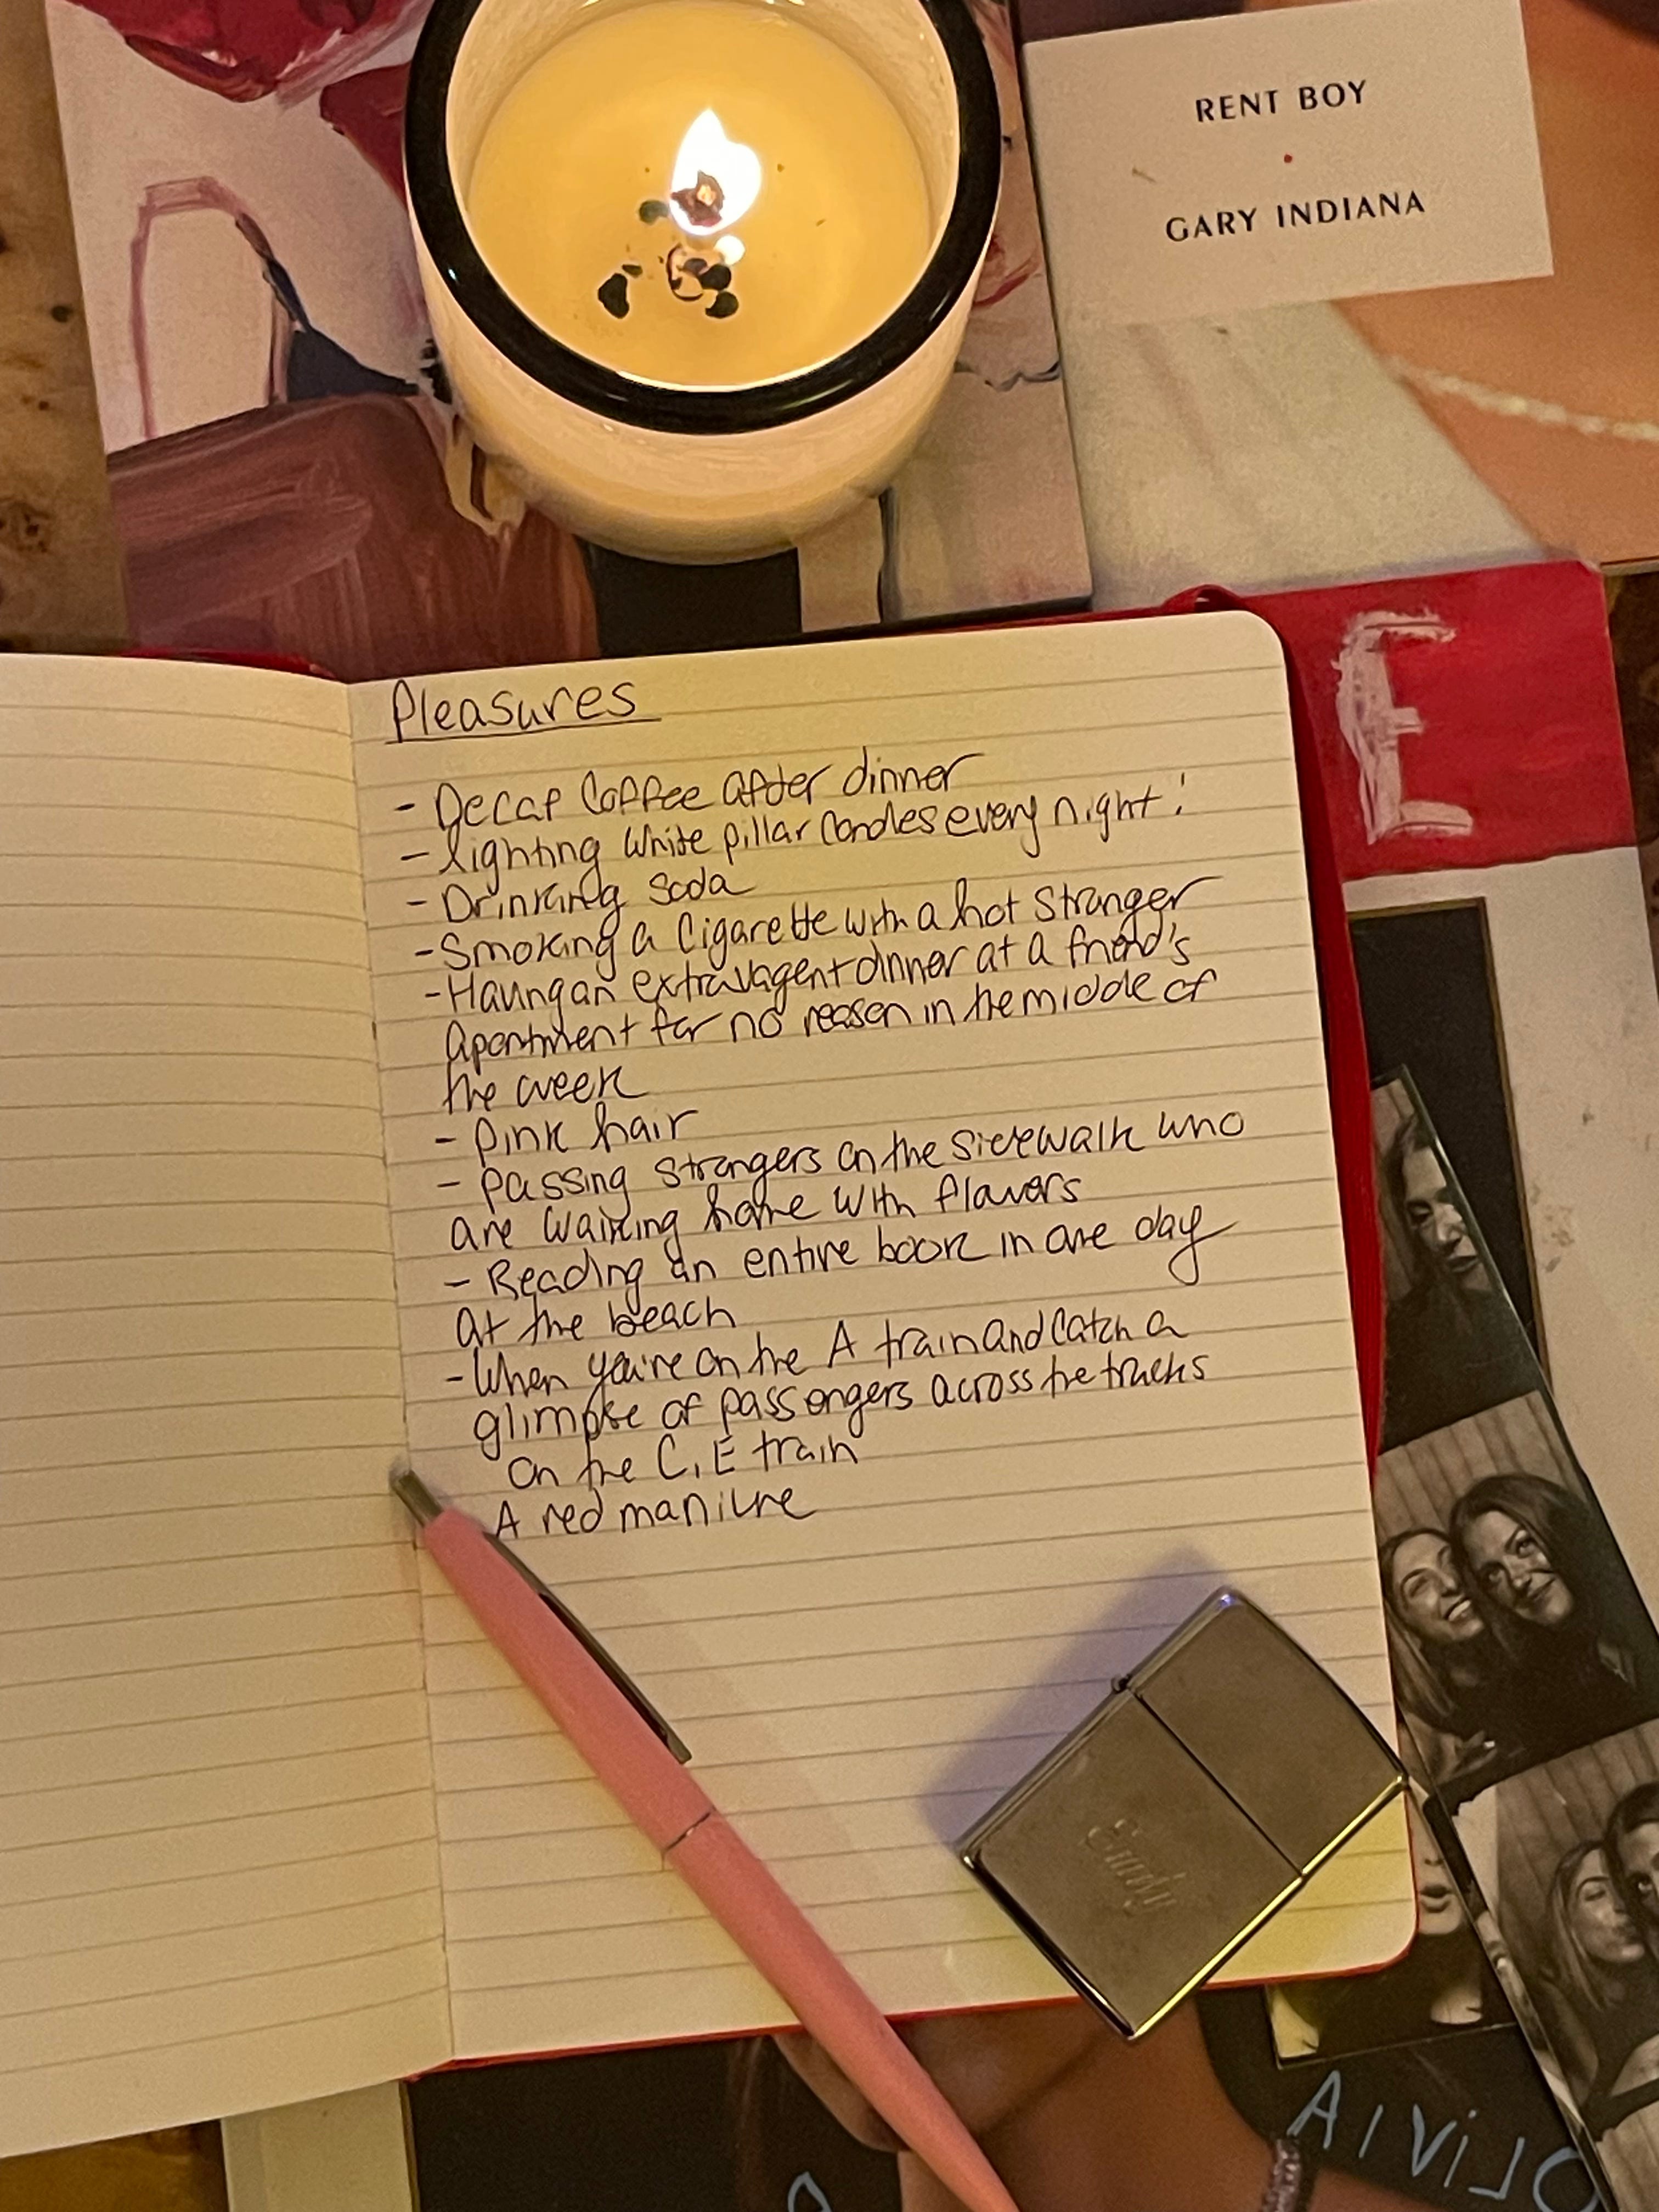 RENT BOY
GARY INDIANA
E
Pleasures
- Decaf Coffee after dinner
- lighting white pillar candles every night!
- Drinking soda
- Smoking a Cigarette with a hot Stranger
- Having an extravagent dinner at a friend's
apartment for no reason in the middle of
the week
- Pink hair
- Passing strangers on the sidewalk who
are walking home with flowers
- Reading an entire book in one day
at the beach
- When you're on the A train and catch a
glimpse of passengers across the tracks
on the C, E train
A red manicure
Emily
OLiVIA